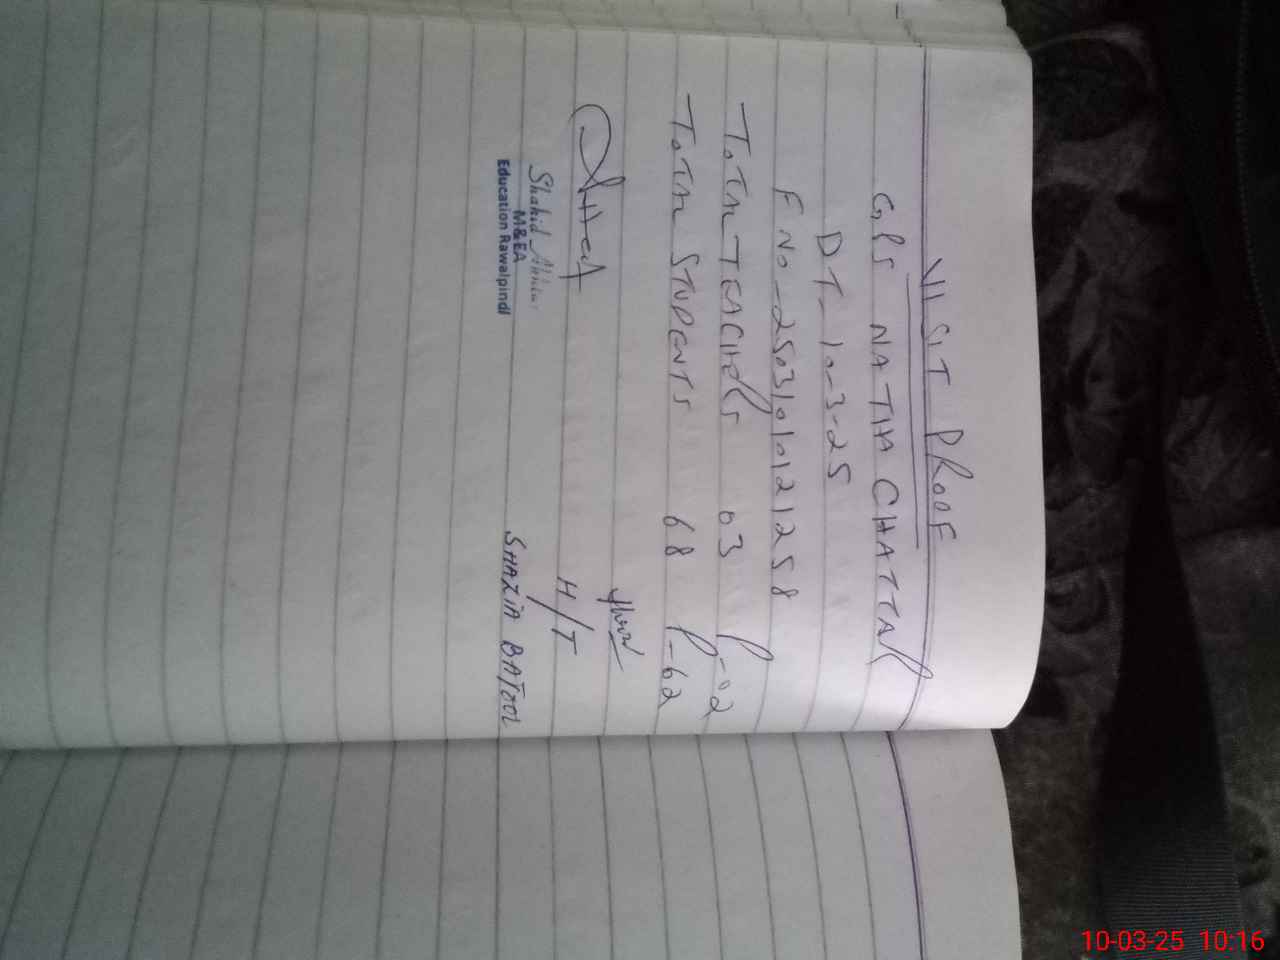 VISIT PROOF
GPS NATHA CHATTAR
DT- 10-3-25
F No - 25031010121258
TOTAL TEACHERS 03 P-02
TOTAL STUDENTS 68 P-62
H/T
SHAZIA BATOOL
Shahid Akhtar
M&EA
Education Rawalpindi
10-03-25 10:16